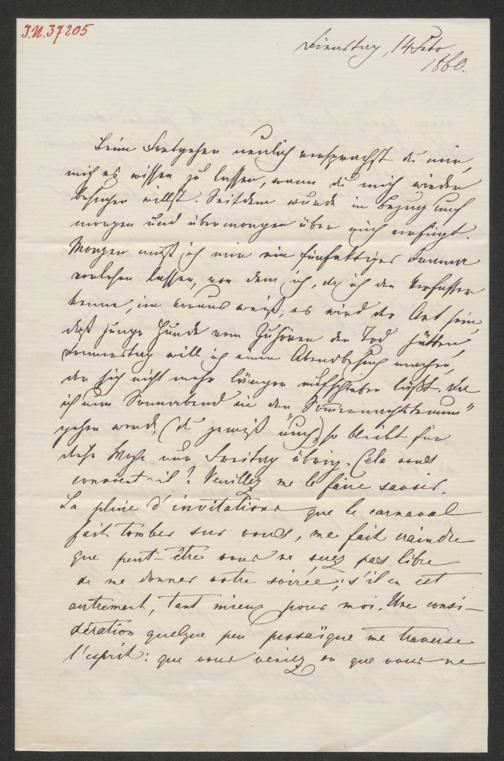 J.N. 37205
Dienstag, 14 Febr
1860.
Beim Fortgehen neulich versprachst du mir,
mich es wissen zu lassen, wann du mich wieder
besuchen willst. Seitdem wurde in Bezug auf
morgen und übermorgen über mich verfügt.
Morgen muß ich mir ein fünfaktiges Drama
vorlesen lassen, von dem ich, da ich den Verfasser
kenne, im voraus weiß, es wird der Art sein,
daß junge Hunde vom Zuhören den Tod hätten,
Donnerstag will ich einen Abendbesuch machen,
der sich nicht mehr länger aufschieben läßt. Da
ich nun Sonnabend in den "Sommernachtstraum"
gehen werde, (du gewiß auch), so bleibt für
diese Woche nur Freitag übrig. Cela vous
convient-il? Veuillez me le faire savoir.
La pluie d'invitations que le carnaval
fait tomber sur vous, me fait craindre
que peut-être vous ne soyez pas libre
de me donner votre soirée; s'il en est
autrement, tant mieux pour moi. Une consi-
dération quelque peu prosaïque me traverse
l'esprit: que vous veniez ou que vous ne